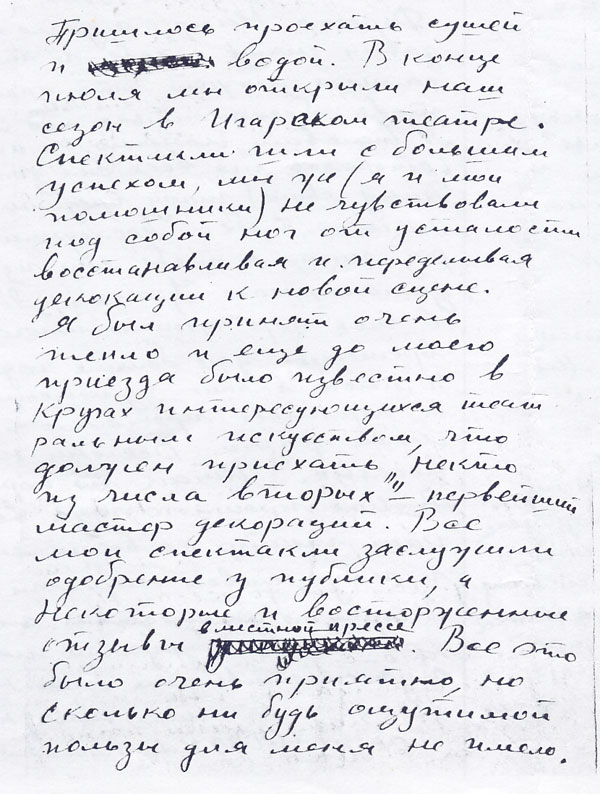 Пришлось проехать сушей
и водой. В конце
июля мы открыли наш
сезон в Игарском театре.
Спектакли шли с большим
успехом, мы же (я и мои
помошники) не чувствовали
под собой ног от усталости
восстанавливая и переделывая
декокации к новой сцене.
Я был принят очень
тепло и еще до моего
приезда было известно в
кругах интересующихся теат
ральным искусством, что
должен приехать „некто
из числа вторых" – первейший
мастер декораций. Все
мои спектакли заслужили
одобрение у публики, а
некоторые и восторженные
отзывы в местной прессе. Все это
было очень приятно, но
сколько ни будь ощутимой
пользы для меня не имело.